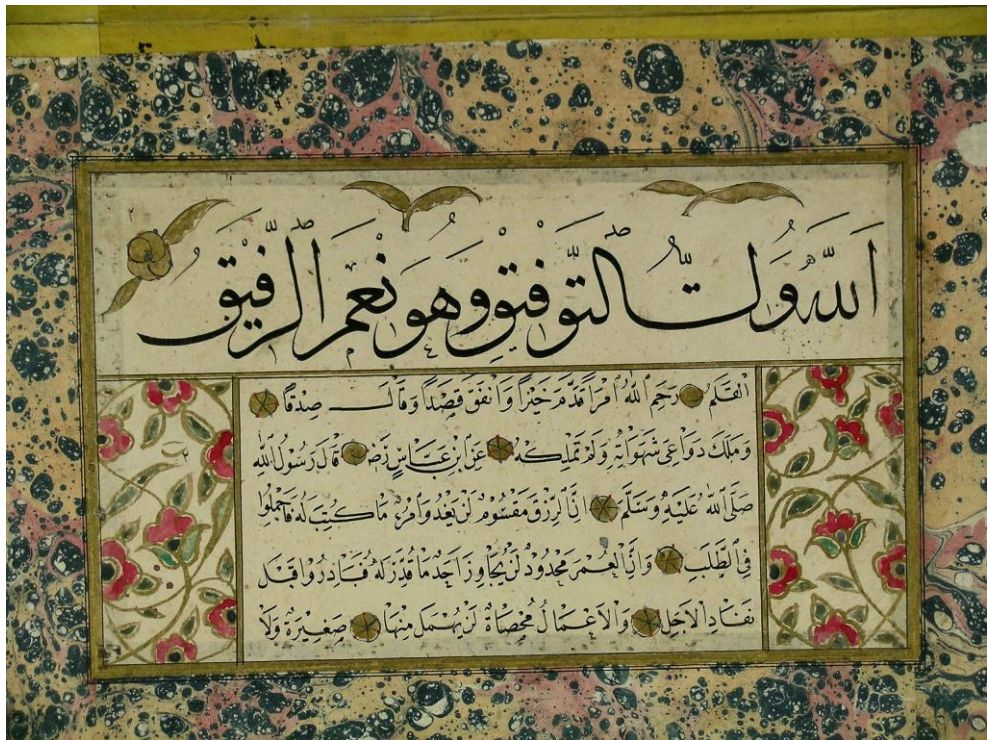 اَللّٰهُ وَلِيُّ التَّوْفِيْقِ وَهُوَ نِعْمَ الرَّفِيْقُ
اَلْقَلَمُ رَحِمَ اللّٰهُ امْرَأً قَدَّمَ خَيْرًا وَاَنْفَقَ قَصْدًا وَقَالَ صِدْقًا
وَمَلَكَ دَوَاعِيَ شَهَوَاتِهِ وَلَمْ تَمْلِكْهُ عَنِ ابْنِ عَبَّاسٍ رَضِ قَالَ رَسُولُ اللّٰهِ
صَلَّى اللّٰهُ عَلَيْهِ وَسَلَّمَ اِنَّ الرِّزْقَ مَقْسُومٌ لَنْ يَعْدُوَ امْرُؤٌ مَا كُتِبَ لَهُ فَاَجْمِلُوا
فِي الطَّلَبِ وَاِنَّ الْعُمْرَ مَحْدُودٌ لَنْ يُجَاوِزَ اَحَدٌ مَا قُدِّرَ لَهُ فَبَادِرُوا قَبْلَ
نَفَادِ الْاَجَلِ وَالْاَعْمَالُ مُحْصَاةٌ لَنْ يُهْمَلَ مِنْهَا صَغِيرَةٌ وَلَا